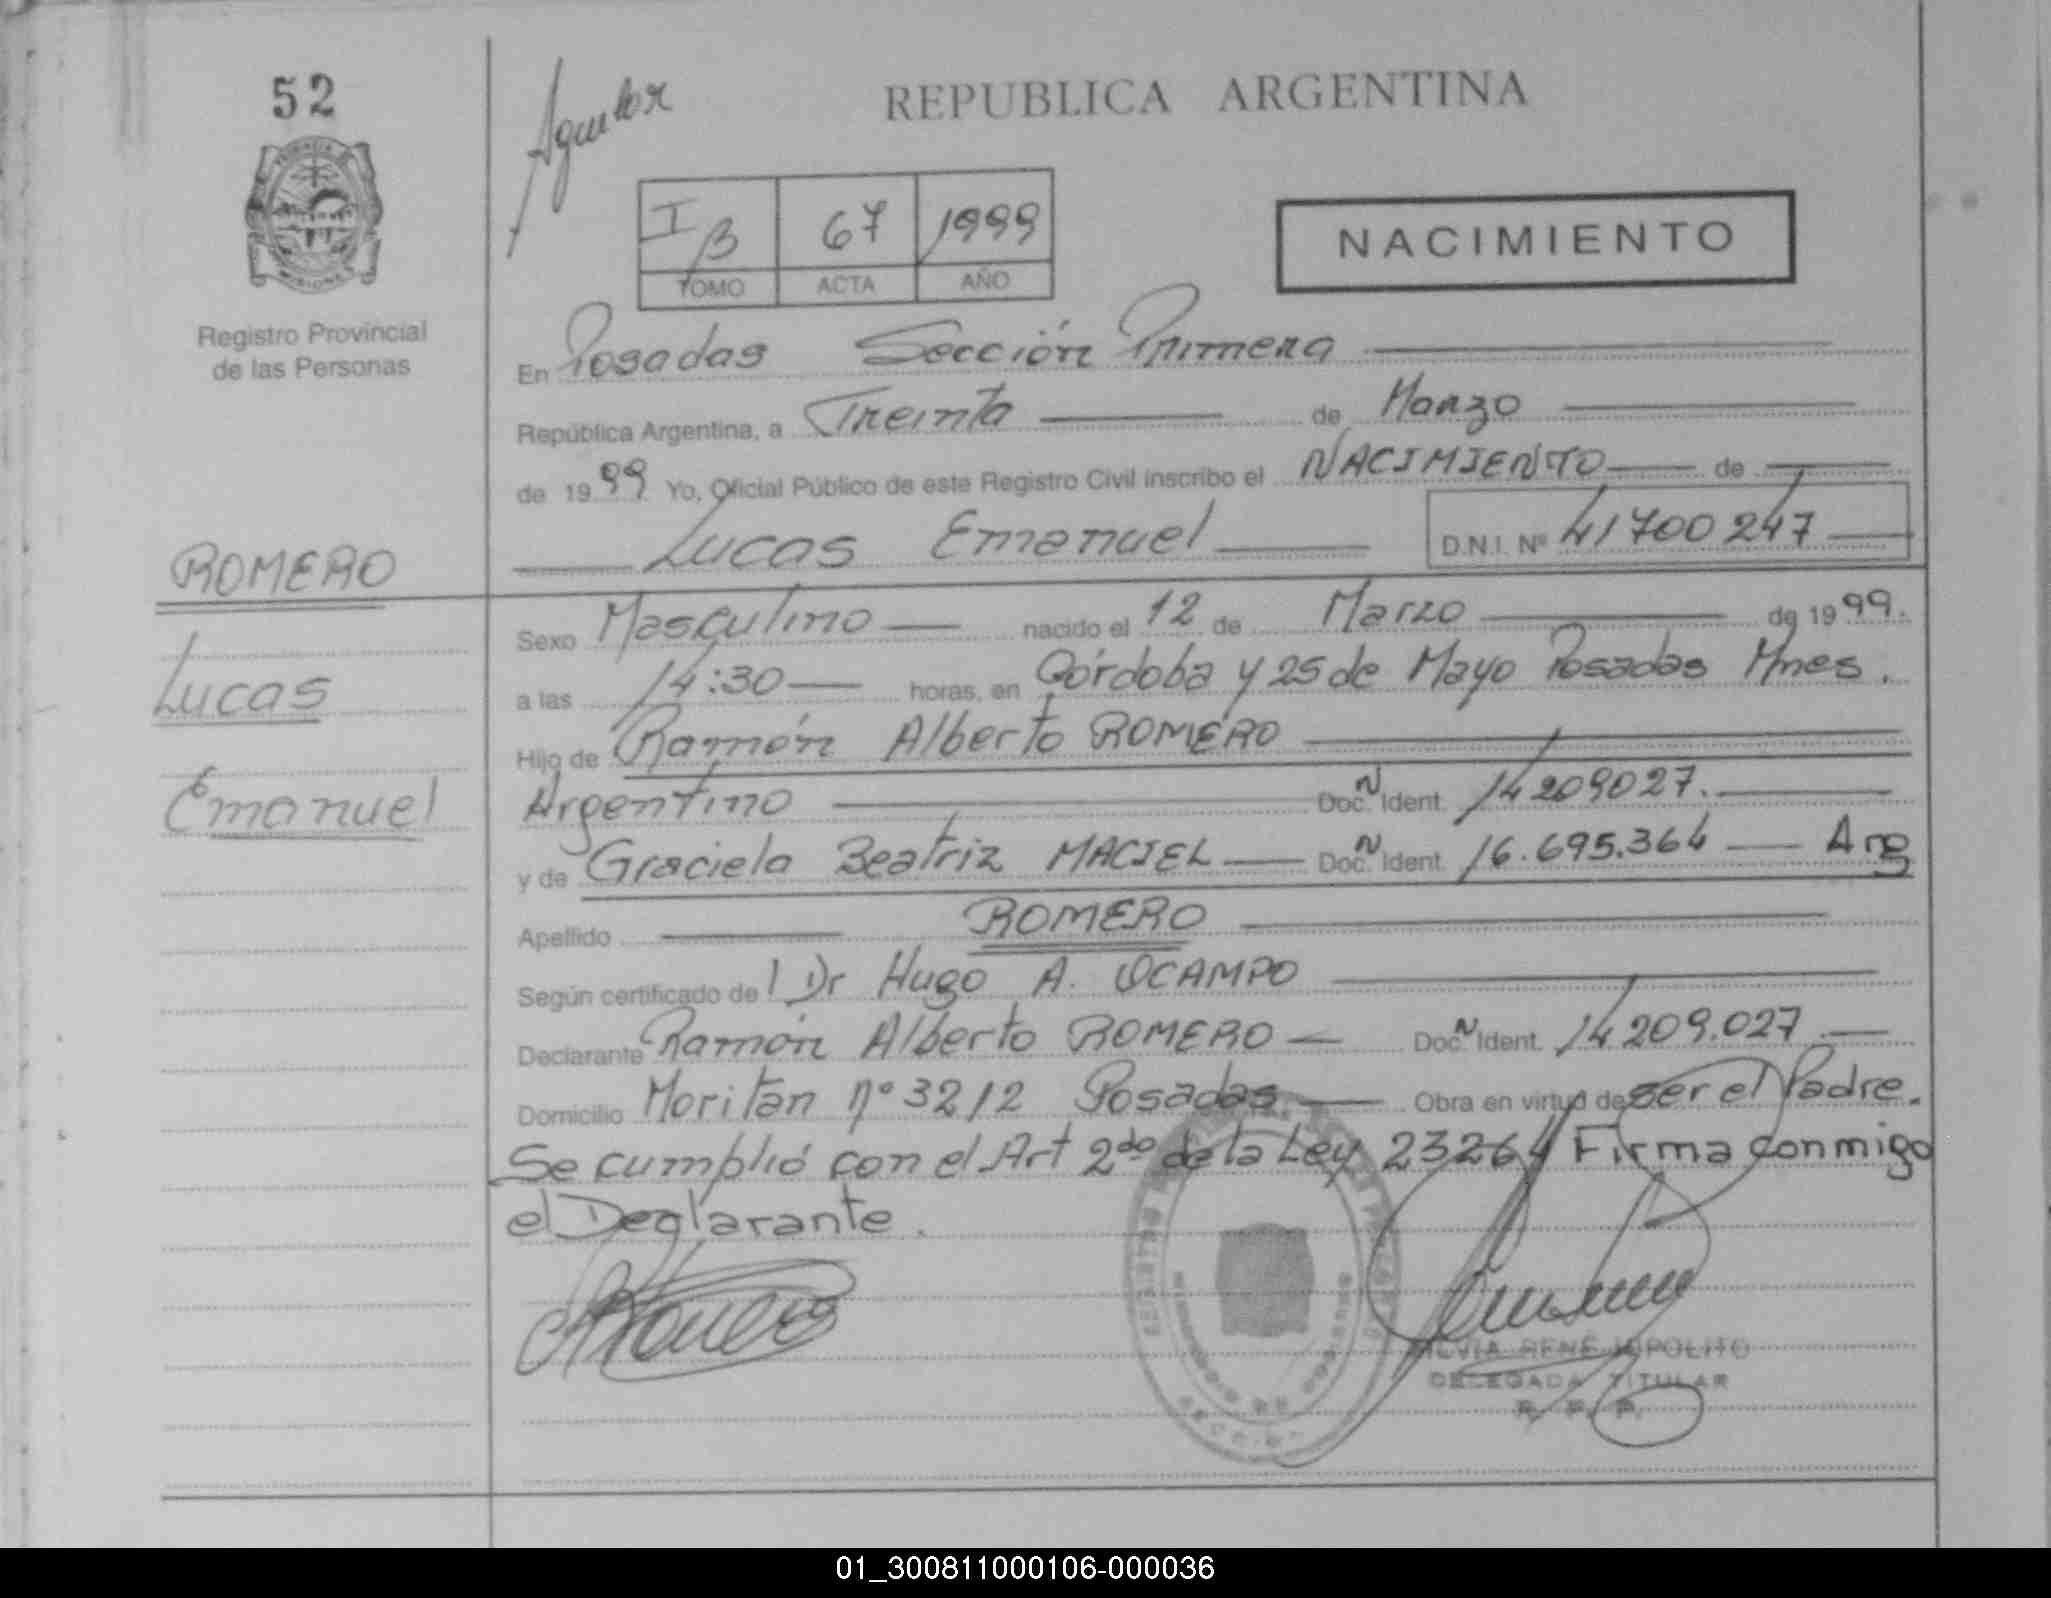 52
Aguilar
REPUBLICA ARGENTINA
I B 67 1999
TOMO ACTA AÑO
NACIMIENTO
Registro Provincial
de las Personas
En Posadas Sección Primera
República Argentina, a Treinta de Marzo
de 1999 Yo, Oficial Público de este Registro Civil inscribo el NACIMIENTO de
Lucas Emanuel D.N.I. Nº 41700247
ROMERO
Lucas
Emanuel
Sexo Masculino nacido el 12 de Marzo de 1999.
a las 14:30 horas, en Córdoba y 25 de Mayo Posadas Mnes.
Hijo de Ramón Alberto ROMERO
Argentino Doc. N Ident. 14209027.
y de Graciela Beatriz MACIEL Doc. N Ident. 16.695.364 Arg
Apellido ROMERO
Según certificado del Dr Hugo A. OCAMPO
Declarante Ramón Alberto ROMERO Doc. N Ident. 14209.027
Domicilio Moritán nº 3212 Posadas Obra en virtud de ser el Padre.
Se cumplió con el Art 2do de la Ley 23264 Firma conmigo
el Declarante.
SILVIA RENÉ HIPOLITO
DELEGADA TITULAR
R. P. P.
01_300811000106-000036